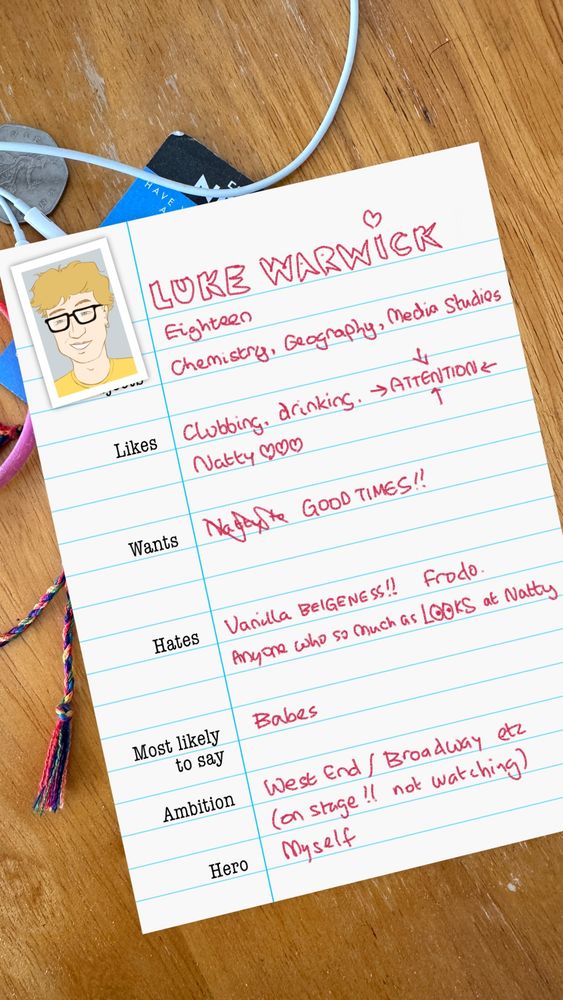 HAVE
A
LUKE WARWICK
Eighteen
Chemistry, Geography, Media Studies
Likes
Clubbing, drinking. → ATTENTION ←
Natty ♡♡♡
Wants
GOOD TIMES!!
Hates
Vanilla BEIGENESS!! Frodo.
Anyone who so much as LOOKS at Natty
Most likely
to say
Babes
Ambition
West End / Broadway etc
(on stage!! not watching)
Hero
Myself